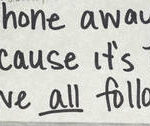 hone away
cause it's
ve all follo